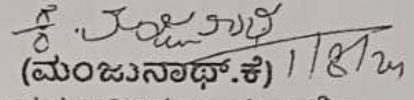 ಕೆ. ಮಂಜುನಾಥ
(ಮಂಜುನಾಥ್.ಕೆ) 1/8/24